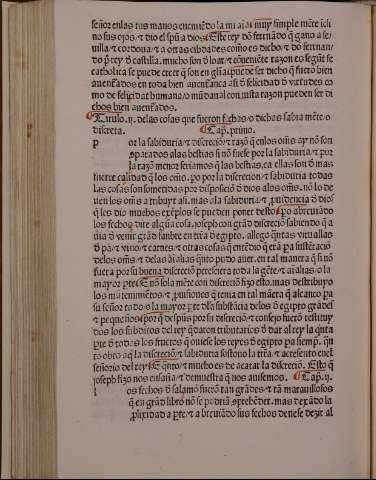 señor enlas tus manos encomiẽdo la mi aĩa: muy simple mẽte icli
no sus ojos ⁊ dio el spũ a dios. Este rey dõ fernãdo q̃ gano a se
uilla ⁊ cordoua ⁊ a otras cibdades como es dicho ⁊ dõ fernan
do p̃ rey d̃ castilla. mucho son d̃ loar ⁊ cõueniẽte razon es segũt fe
catholica se puede creer q̃ son en gl̃ia puede ser dicho q̃ fuerõ bien
auenẽados en toda bien auenẽança asi d̃ felicidad d̃ virtudes co
mo de felicidat humana / o mũdanal con justa razon pueden ser di
chos bien auenẽados.
Titulo .ij. delas cosas que fueron fechas / o dichas sabia mẽte / o
discreta. Cap̃. primo.
p or la sabiduria ⁊ discreciõ ⁊ razõ q̃ enlos om̃s ay nõ son
separados alas bestias si nõ fuese por la sabiduria ⁊ por
la razon menor seriamos q̃ las bestias. ca ellas son d̃ mas
fuerte calidad q̃ los om̃s. po por la discrecion ⁊ sabiduria todas
las cosas son sometidas por disposiciõ d̃ dios alos om̃s. nõ lo de
uen los om̃s atribuyr asi. mas ala sabiduria ⁊ prouidencia d̃ dios
q̃ les dio muchos exẽplos se pueden poner desto po abreuiãdo
los fechos dire algũa cosa. joseph con grãd discreciõ sabiendo q̃ a
uia d̃ venir grãd fanbre en tr̃ra d̃ egipto. allego q̃ntas vituallas
d̃ pã ⁊ vino ⁊ carnes ⁊ otras cosas q̃ entẽdio q̃ erã pa sustẽtaciõ
delos om̃s ⁊ delas aĩalias q̃nto pudo auer. en tal manera q̃ si nõ
fuera por su buena discreciõ peresciera toda la gẽte ⁊ aĩalias. o la
mayor p̃te. E nõ sola mẽte con discreciõ fizo esto. mas destribuyo
los mãtenimiẽtos ⁊ prouisiones q̃ tenia en tal mãera q̃ alcanço pa
su señor todo / o la mayor p̃te dla substãcia delos d̃ egipto grãdes
⁊ pequeños por q̃ despues por su discreciõ ⁊ consejo fuerõ restituy
dos los subditos del rey q̃daron tributarios d̃ dar al rey la q̃nta
p̃te d̃ todos los fructos q̃ ouiese los reyes d̃ egipto pa siemp̃. q̃n
to obro aq̃ la discreciõ ⁊ sabiduria sostouo la tr̃ra ⁊ acresento enel
señorio del rey E q̃nto ⁊ mucho es de acatar la discreciõ. Esto q̃
joseph fizo nos enseña ⁊ demuestra q̃ nos auisemos. Cap̃. ij.
l os fechos d̃ salamõ fuerõ tan grãdes ⁊ tã marauillosos
q̃ en grãd libro nõ se podriã cõprehẽder. mas dexãdo la
prolixidad a p̃te ⁊ abreuiãdo sus fechos deuese dezir al